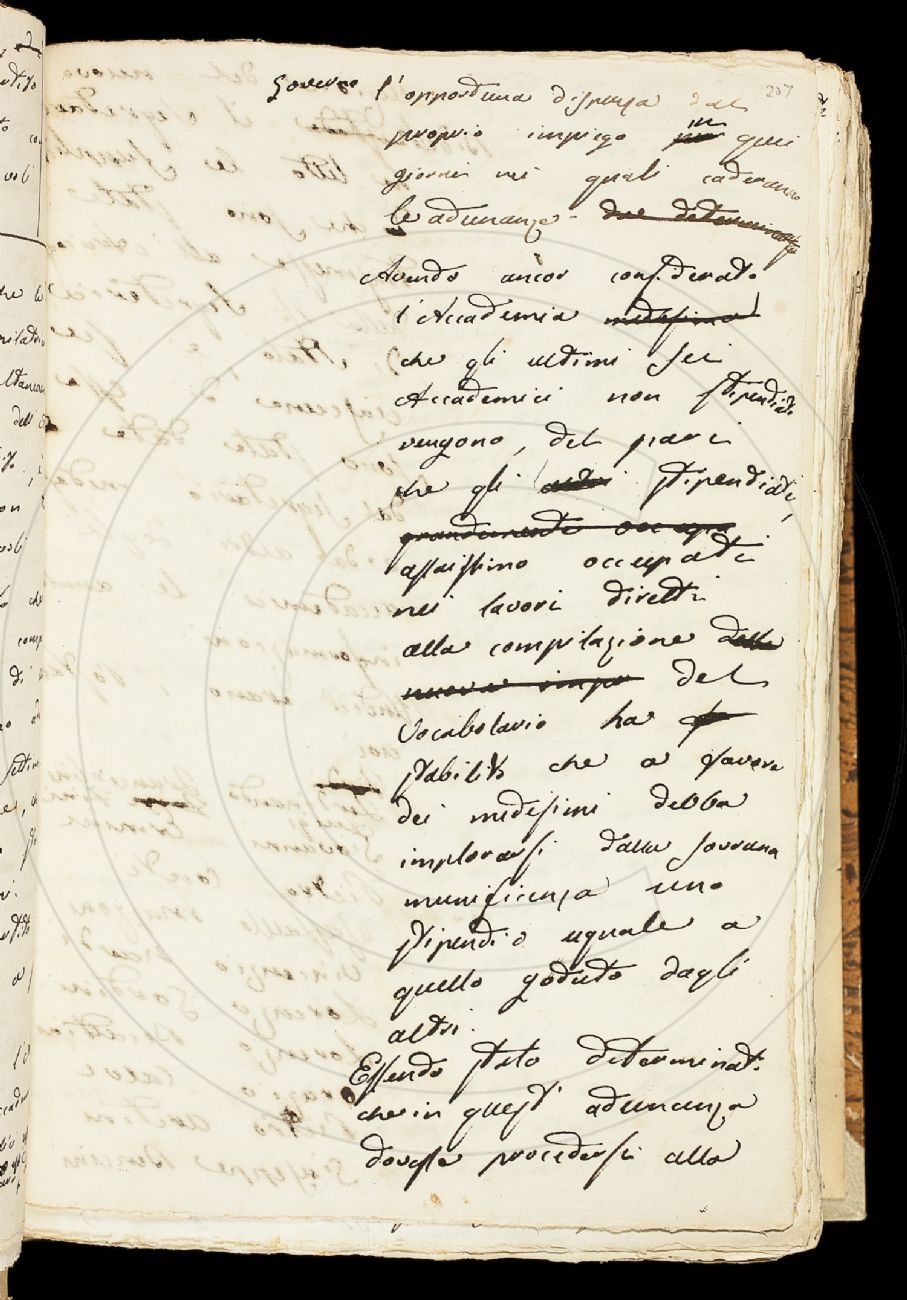 207
Governo l'opportuna dispensa dal
proprio impiego per in quei
giorni nei quali caderanno
le adunanze - due determinate
Avendo ancor considerato
l'Accademia medesima
che gli ultimi sei
Accademici non stipendiati
vengono, del pari
che gli altri stipendiati,
grandemente occupa
assaissimo occupati
nei lavori diretti
alla compilazione della
nuova impr del
Vocabolario ha
stabilito che a favore
dei medesimi debba
implorarsi dalla sovrana
munificenza uno
stipendio uguale a
quello goduto dagli
altri.
Essendo stato determinato
che in quest' adunanza
dovesse procedersi alla